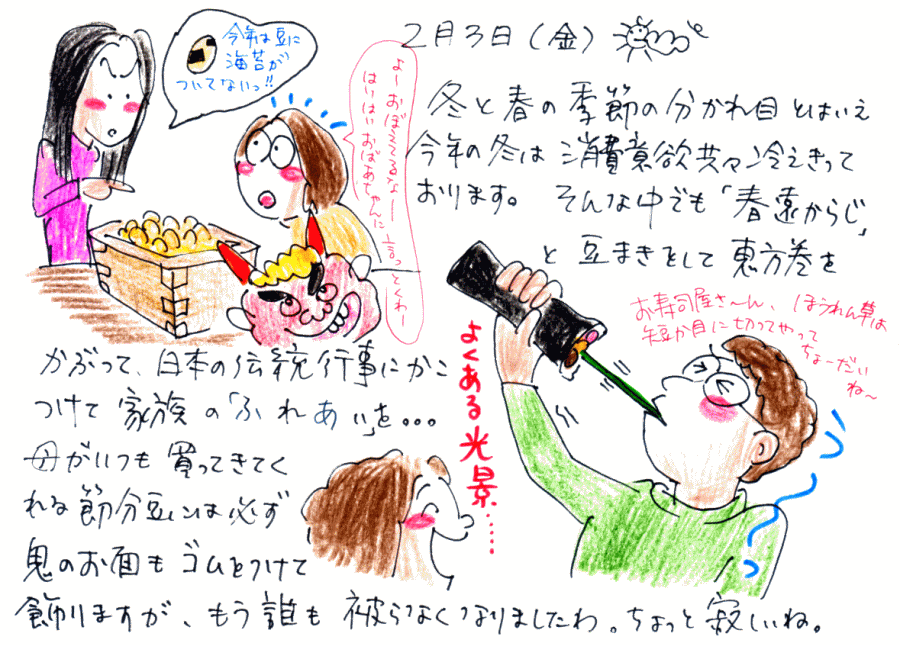 2月3日（金）
今年は豆に
海苔が
ついてないっ!!
よーおぼえてるなー
はいはいおばあちゃんに言っとくわー
冬と春の季節の分かれ目とはいえ
今年の冬は消費意欲共々冷えきって
おります。そんな中でも「春遠からじ」
と豆まきをして恵方巻を
お寿司屋さ〜ん、ほうれん草は
短か目に切ってやって
ちょーだい
ね〜
よくある光景……
かぶって、日本の伝統行事にかこ
つけて家族の「ふれあい」を…
母がいつも買ってきてく
れる節分豆には必ず
鬼のお面もゴムをつけて
飾りますが、もう誰も被らなくなりましたわ。ちょっと寂しいね。